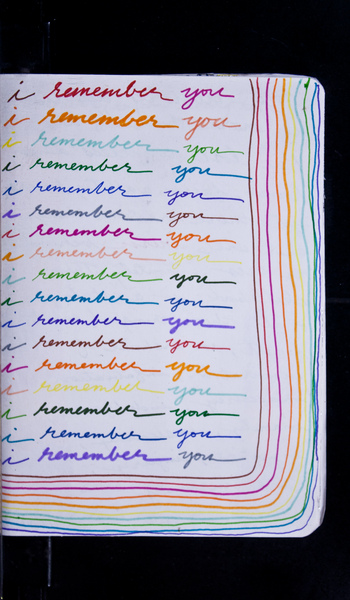 i remember you
i remember you
i remember you
i remember you
i remember you
i remember you
i remember you
i remember you
i remember you
i remember you
i remember you
i remember you
i remember you
i remember you
i remember you
i remember you
i remember you